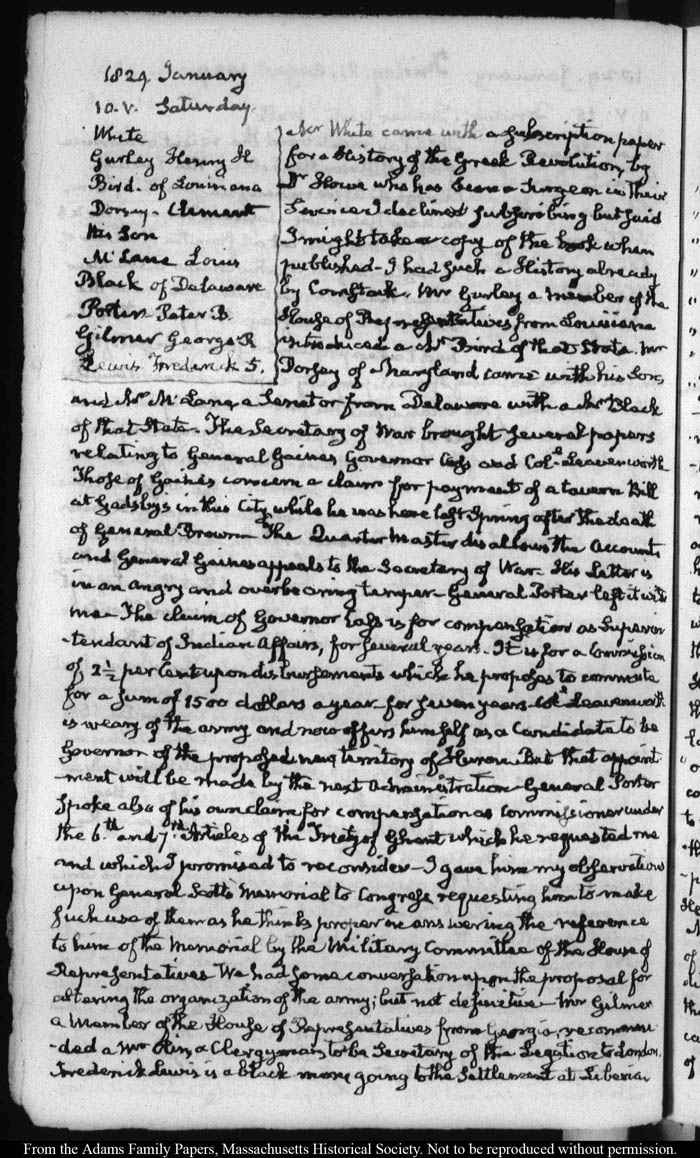 1829. January
10. V. Saturday.
White
Gurley Henry H
Bird. of Louisiana
Dorsey. Clement
His Son
McLane Louis
Black of Delaware
Porter Peter B.
Gilmer George R
Lewis Frederick S.
Mr White came with a subscription paper
for a History of the Greek Revolution, by
Dr Howe who has been a Surgeon in their
Service. I declined subscribing but said
I might take a copy of the book when
published - I had such a History already
by Comstock. Mr Gurley a member of the
House of Representatives from Louisiana
introduced a Mr Bird of that State. Mr
Dorsey of Maryland came with his Son,
and Mr McLane, a Senator from Delaware with a Mr Black
of that State. The Secretary of War brought several papers
relating to General Gaines, Governor Cass and Col. Leavenworth
Those of Gaines concern a claim for payment of a tavern Bill
at Gadsby's in this City while he was here last Spring after the death
of General Brown - The Quarter Master disallows the Accounts
and General Gaines appeals to the Secretary of War. His Letter is
in an angry and overbearing temper - General Porter left it with
me - The claim of Governor Cass is for compensation as Superin
-tendant of Indian Affairs, for several years. It is for a Commission
of 2½ per Cent upon disbursements which he proposes to commute
for a sum of 1500 dollars a year for seven years - Col. Leavenworth
is weary of the army and now offers himself as a Candidate to be
Governor of the proposed new territory of Huron. But that appoint
-ment will be made by the next Administration - General Porter
spoke also of his own claim for compensation as Commissioner under
the 6th and 7th Articles of the Treaty of Ghent which he requested me
and which I promised to reconsider - I gave him my observations
upon General Scott's Memorial to Congress requesting him to make
such use of them as he thinks proper in answering the reference
to him of the Memorial by the Military Committee of the House of
Representatives We had some conversation upon the proposal for
altering the organization of the army; but not definitive - Mr Gilmer
a Member of the House of Representatives from Georgia, recommen
-ded a Mr Olin, a Clergyman to be Secretary of the Legation to London.
Frederick Lewis is a black man, going to the Settlement at Liberia,
From the Adams Family Papers, Massachusetts Historical Society. Not to be reproduced without permission.